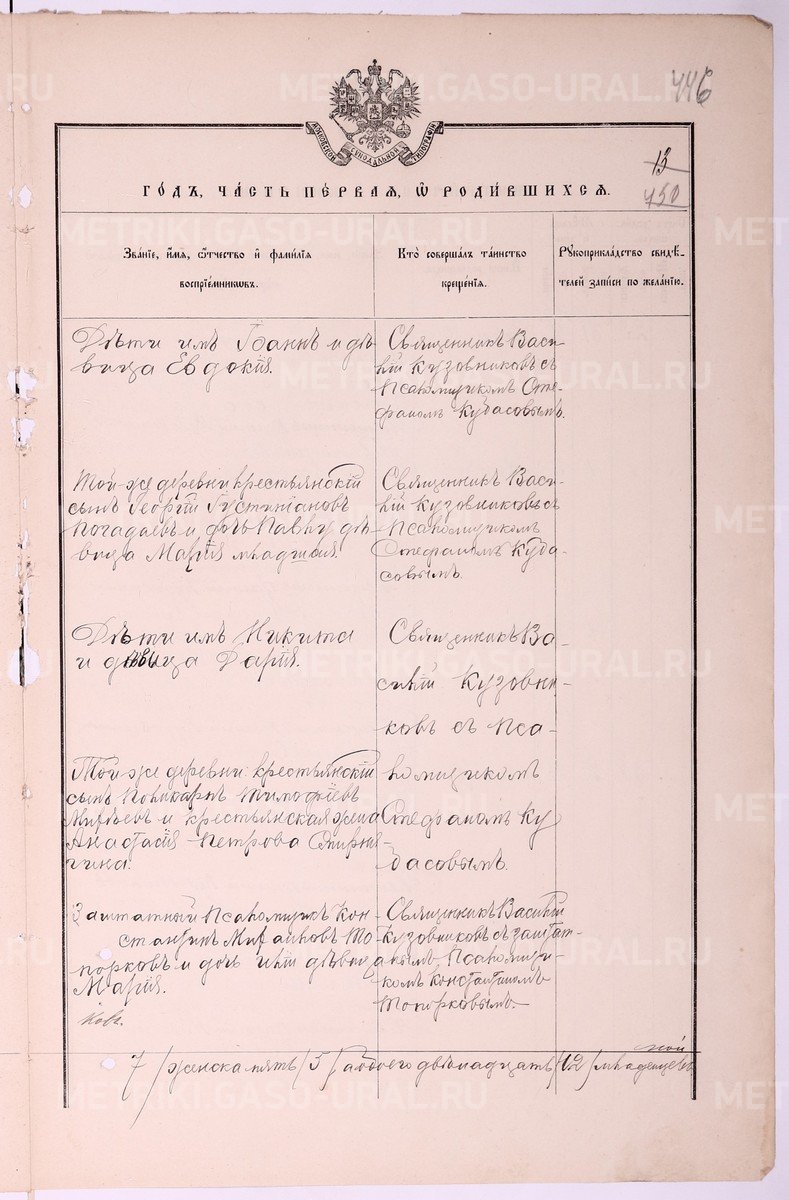 446
МОСКОВСКОЙ СѴНОДАЛЬНОЙ ТИПОГРАФІИ
13
450
ГО́ДЪ, ЧА́СТЬ ПЕ́РВАЯ, Ѿ РОДИ́ВШИХСЯ.
Зва́нїе, и҆́мя, ѻ҆́тчество и҆ фами́лїя
воспрїе́мникѡвъ.
Кто̀ соверша́лъ та́инство
креще́нїя.
Рꙋкоприкла́дство свидѣ́-
телей за́писи по жела́нїю.
Дѣти имъ Іоаннъ и дѣ-
вица Евдокія.
Священникъ Васи-
лій Кузовниковъ съ
Псаломщикомъ Сте-
фаномъ Кудасовымъ.
Той-же деревни крестьянскій
сынъ Георгій Густиніановъ
Погадаевъ и дочь Павлу дѣ-
вица Марія младшая.
Священникъ Васи-
лій Кузовниковъ съ
Псаломщикомъ
Стефаномъ Куда-
совымъ.
Дѣти имъ Никита
и дѣвица Дарія.
Священникъ Ва-
силій Кузовни-
ковъ съ Пса-
ломщикомъ
Стефаномъ Ку
дасовымъ.
Той-же деревни крестьянскій
сынъ Поликарпъ Тимофѣевъ
и крестьянская жена
Анастасія Петрова
Заштатный Псаломщикъ Кон-
стантинъ Михаиловъ То-
порковъ и дочь дѣвица
Марія.
Священникъ Василій
Кузовниковъ съ заштат-
нымъ Псаломщи-
комъ Константиномъ
Топорковымъ.
7/ женска пять /5/ а обоего двѣнадцать /12/ младенцевъ